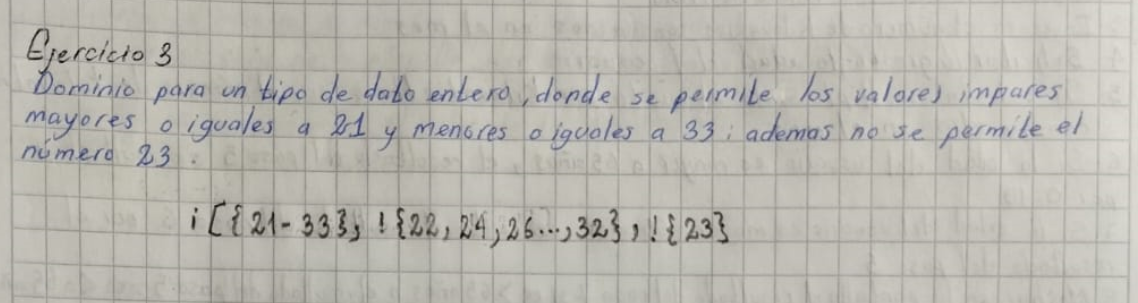 Ejercicio 3
Dominio para un tipo de dato entero, donde se permite los valores impares
mayores o iguales a 21 y menores o iguales a 33; ademas no se permite el
número 23.
i[{21-33}, !{22, 24, 26..., 32}, !{23}